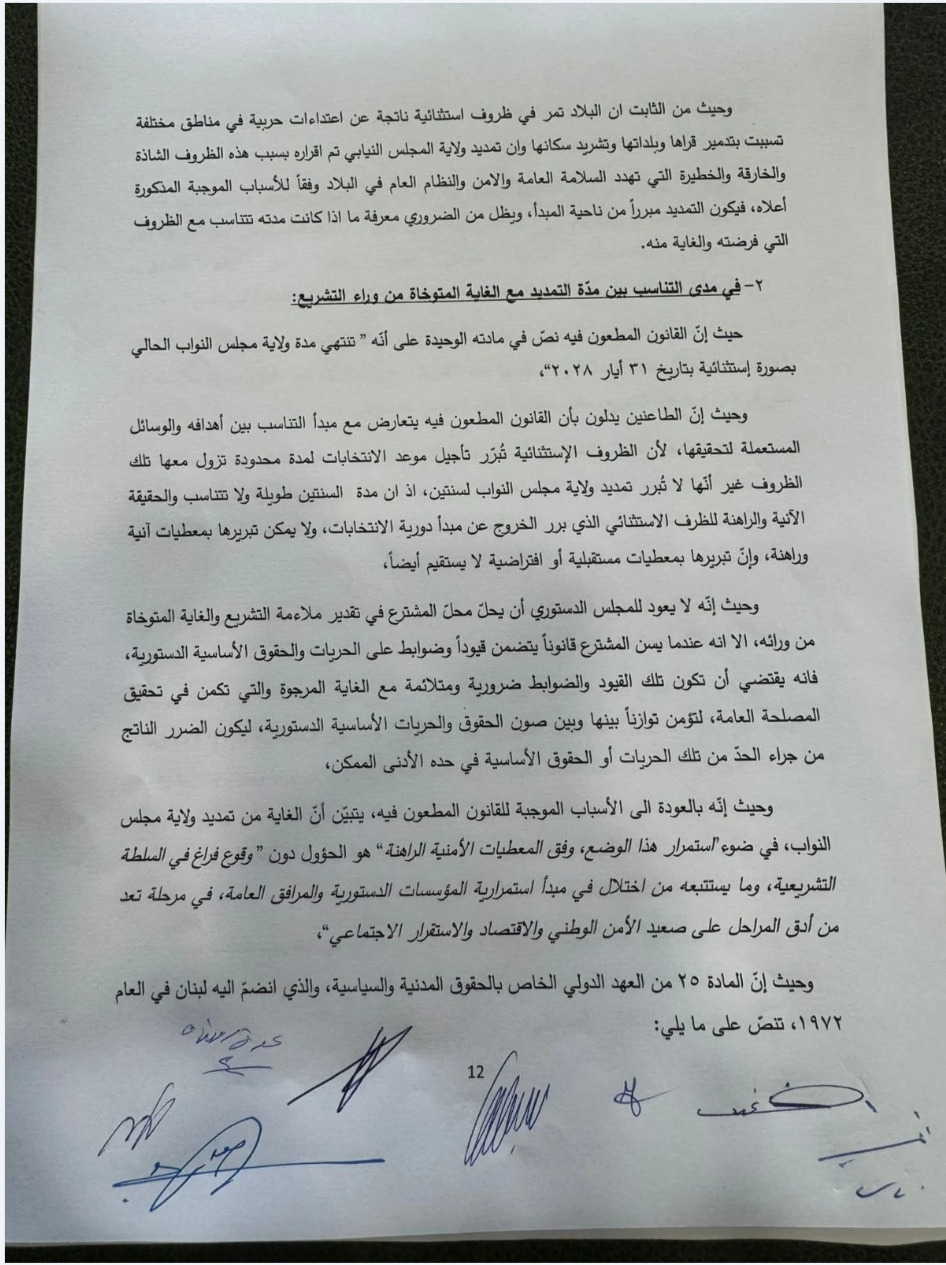 وحيث من الثابت ان البلاد تمر في ظروف استثنائية ناتجة عن اعتداءات حربية في مناطق مختلفة
تسببت بتدمير قراها وبلداتها وتشريد سكانها وان تمديد ولاية المجلس النيابي تم اقراره بسبب هذه الظروف الشاذة
والخارقة والخطيرة التي تهدد السلامة العامة والامن والنظام العام في البلاد وفقاً للأسباب الموجبة المذكورة
أعلاه، فيكون التمديد مبرراً من ناحية المبدأ، ويظل من الضروري معرفة ما اذا كانت مدته تتناسب مع الظروف
التي فرضته والغاية منه.
٢- في مدى التناسب بين مدّة التمديد مع الغاية المتوخاة من وراء التشريع:
حيث إنّ القانون المطعون فيه نصّ في مادته الوحيدة على أنّه " تنتهي مدة ولاية مجلس النواب الحالي
بصورة إستثنائية بتاريخ ٣١ أيار ٢٠٢٨"،
وحيث إنّ الطاعنين يدلون بأن القانون المطعون فيه يتعارض مع مبدأ التناسب بين أهدافه والوسائل
المستعملة لتحقيقها، لأن الظروف الإستثنائية تُبرّر تأجيل موعد الانتخابات لمدة محدودة تزول معها تلك
الظروف غير أنّها لا تُبرر تمديد ولاية مجلس النواب لسنتين، اذ ان مدة السنتين طويلة ولا تتناسب والحقيقة
الآنية والراهنة للظرف الاستثنائي الذي برر الخروج عن مبدأ دورية الانتخابات، ولا يمكن تبريرها بمعطيات آنية
وراهنة، وإنّ تبريرها بمعطيات مستقبلية أو افتراضية لا يستقيم أيضاً،
وحيث إنّه لا يعود للمجلس الدستوري أن يحلّ محلّ المشترع في تقدير ملاءمة التشريع والغاية المتوخاة
من ورائه، الا انه عندما يسن المشترع قانوناً يتضمن قيوداً وضوابط على الحريات والحقوق الأساسية الدستورية،
فانه يقتضي أن تكون تلك القيود والضوابط ضرورية ومتلائمة مع الغاية المرجوة والتي تكمن في تحقيق
المصلحة العامة، لتؤمن توازناً بينها وبين صون الحقوق والحريات الأساسية الدستورية، ليكون الضرر الناتج
من جراء الحدّ من تلك الحريات أو الحقوق الأساسية في حده الأدنى الممكن،
وحيث إنّه بالعودة الى الأسباب الموجبة للقانون المطعون فيه، يتبيّن أنّ الغاية من تمديد ولاية مجلس
النواب، في ضوء"استمرار هذا الوضع، وفق المعطيات الأمنية الراهنة" هو الحؤول دون " وقوع فراغ في السلطة
التشريعية، وما يستتبعه من اختلال في مبدأ استمرارية المؤسسات الدستورية والمرافق العامة، في مرحلة تعد
من أدق المراحل على صعيد الأمن الوطني والاقتصاد والاستقرار الاجتماعي"،
وحيث إنّ المادة ٢٥ من العهد الدولي الخاص بالحقوق المدنية والسياسية، والذي انضمّ اليه لبنان في العام
١٩٧٢، تنصّ على ما يلي:
12